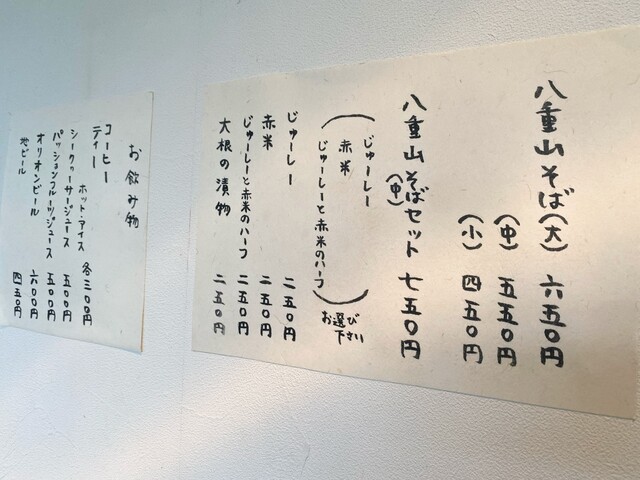 八重山そば(大) 六五〇円
(中) 五五〇円
(小) 四五〇円
八重山そばセット 七五〇円
(中)
じゅーしー
赤米
じゅーしーと赤米のハーフ
お選び
下さい
じゅーしー 二五〇円
赤米 二五〇円
じゅーしーと赤米のハーフ 二五〇円
大根の漬物 二五〇円
お飲み物
コーヒー
ティー ホット・アイス 各三〇〇円
シークヮーサージュース 五〇〇円
パッションフルーツジュース 五〇〇円
オリオンビール 六〇〇円
地ビール 四五〇円